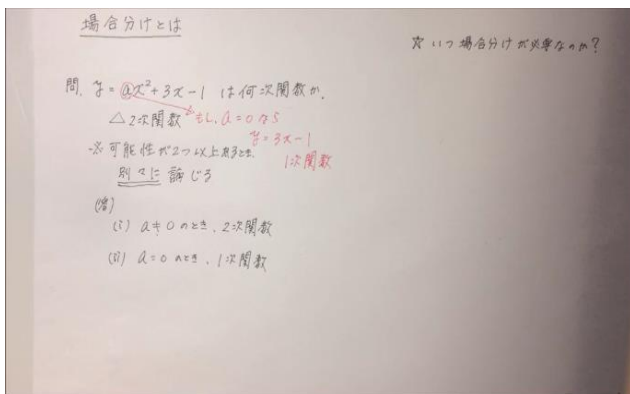 場合分けとは
☆ いつ場合分けが必要なのか?
問. y = ax²+3x−1 は何次関数か.
△2次関数 もし、a=0なら
y=3x−1
1次関数
※可能性が2つ以上あるとき、
別々に論じる
(答)
(i) a≠0のとき、2次関数
(ii) a=0のとき、1次関数